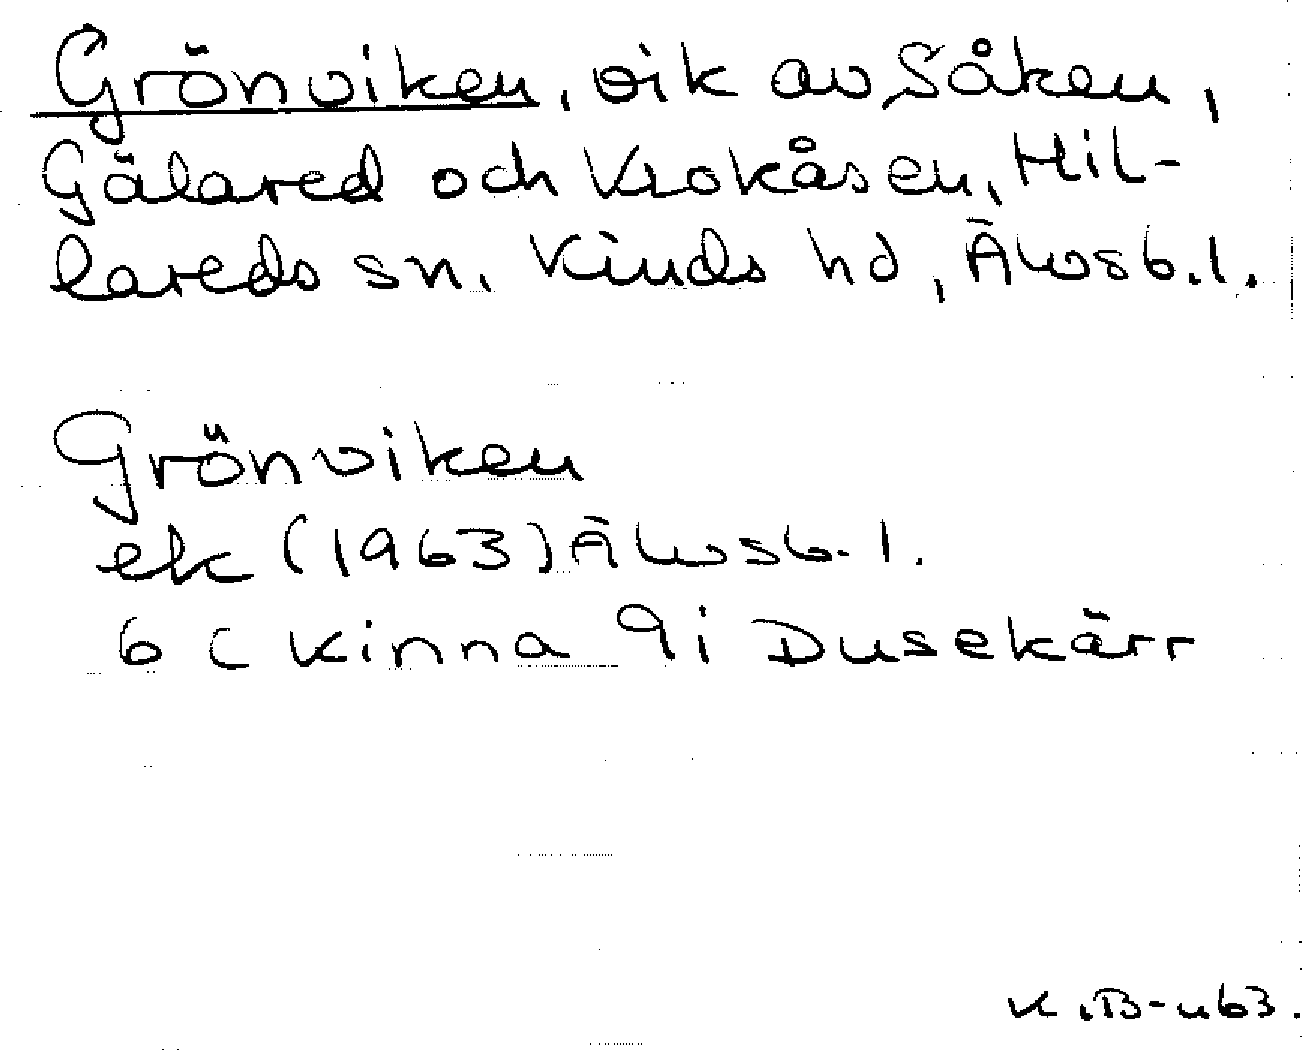 Grönviken, vik av Såken,
Gälared och Krokåsen, Hil-
lareds sn. Kinds hd, Älvsb.l.
Grönviken
ek (1963) Älvsb.l.
6 C Kinna 9i Dusekärr
K.B-n63.